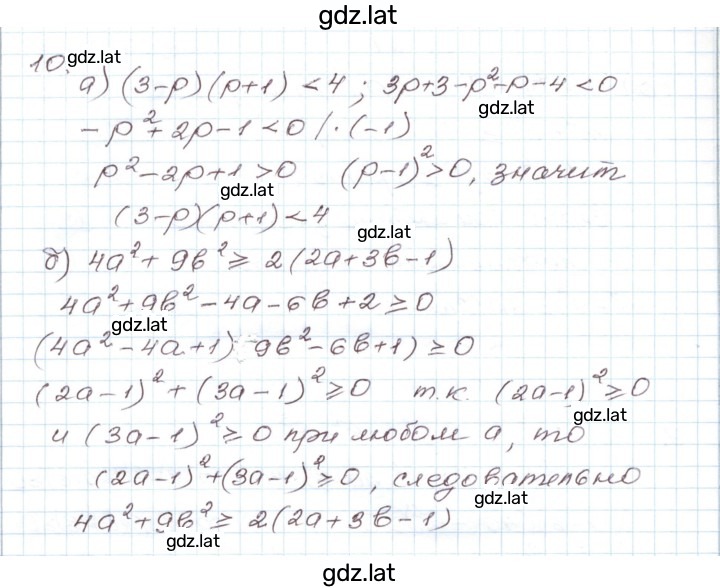 gdz.lat
10. gdz.lat
а) (3-p)(p+1) < 4 ; 3p+3-p²-p-4 < 0
gdz.lat
-p²+2p-1 < 0 /·(-1)
p²-2p+1 > 0 (p-1)² > 0, значит
gdz.lat
(3-p)(p+1) < 4
gdz.lat
б) 4a²+9b² ≥ 2(2a+3b-1)
4a²+9b²-4a-6b+2 ≥ 0
gdz.lat
(4a²-4a+1) 9b²-6b+1) ≥ 0
(2a-1)²+(3a-1)² ≥ 0 т.к. (2a-1)² ≥ 0
gdz.lat
и (3a-1)² ≥ 0 при любом a, то
(2a-1)²+(3a-1)² ≥ 0, следовательно
gdz.lat
4a²+9b² ≥ 2(2a+3b-1)
gdz.lat
gdz.lat